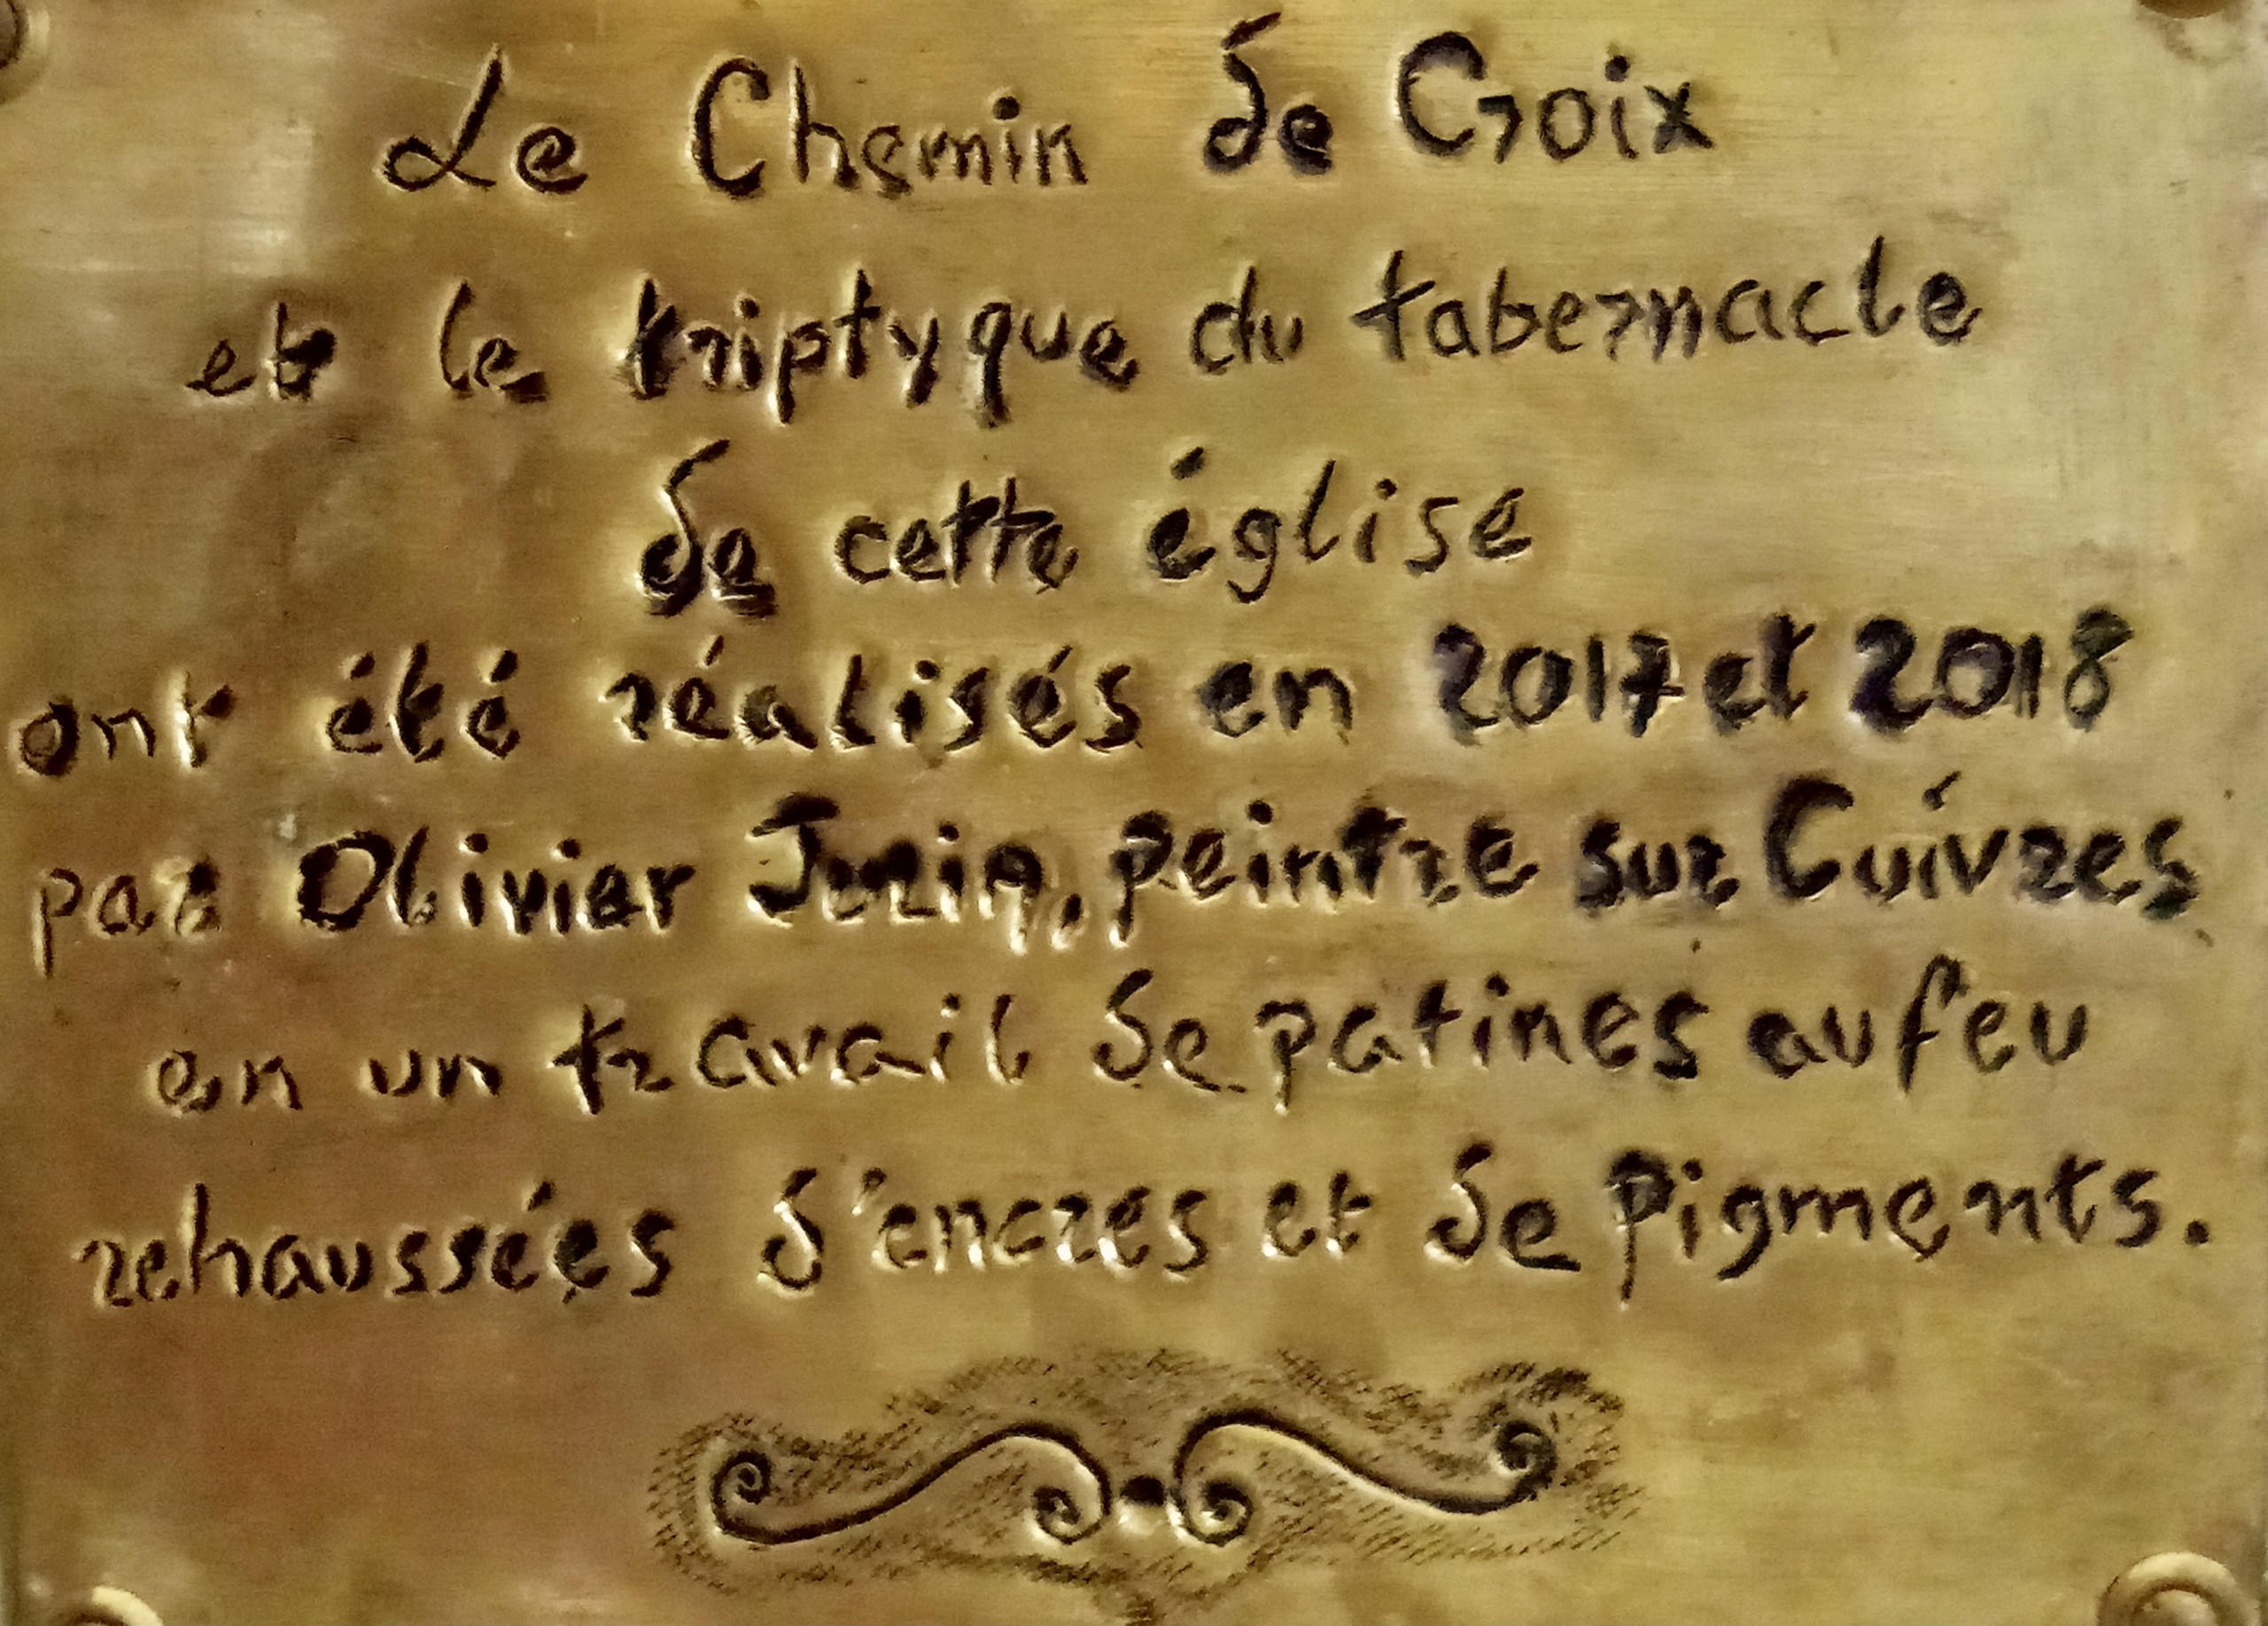 Le Chemin de Croix
et le triptyque du tabernacle
de cette église
ont été réalisés en 2017 et 2018
par Olivier Juzin, peintre sur Cuivres
en un travail de patines au feu
rehaussées d'encres et de Pigments.